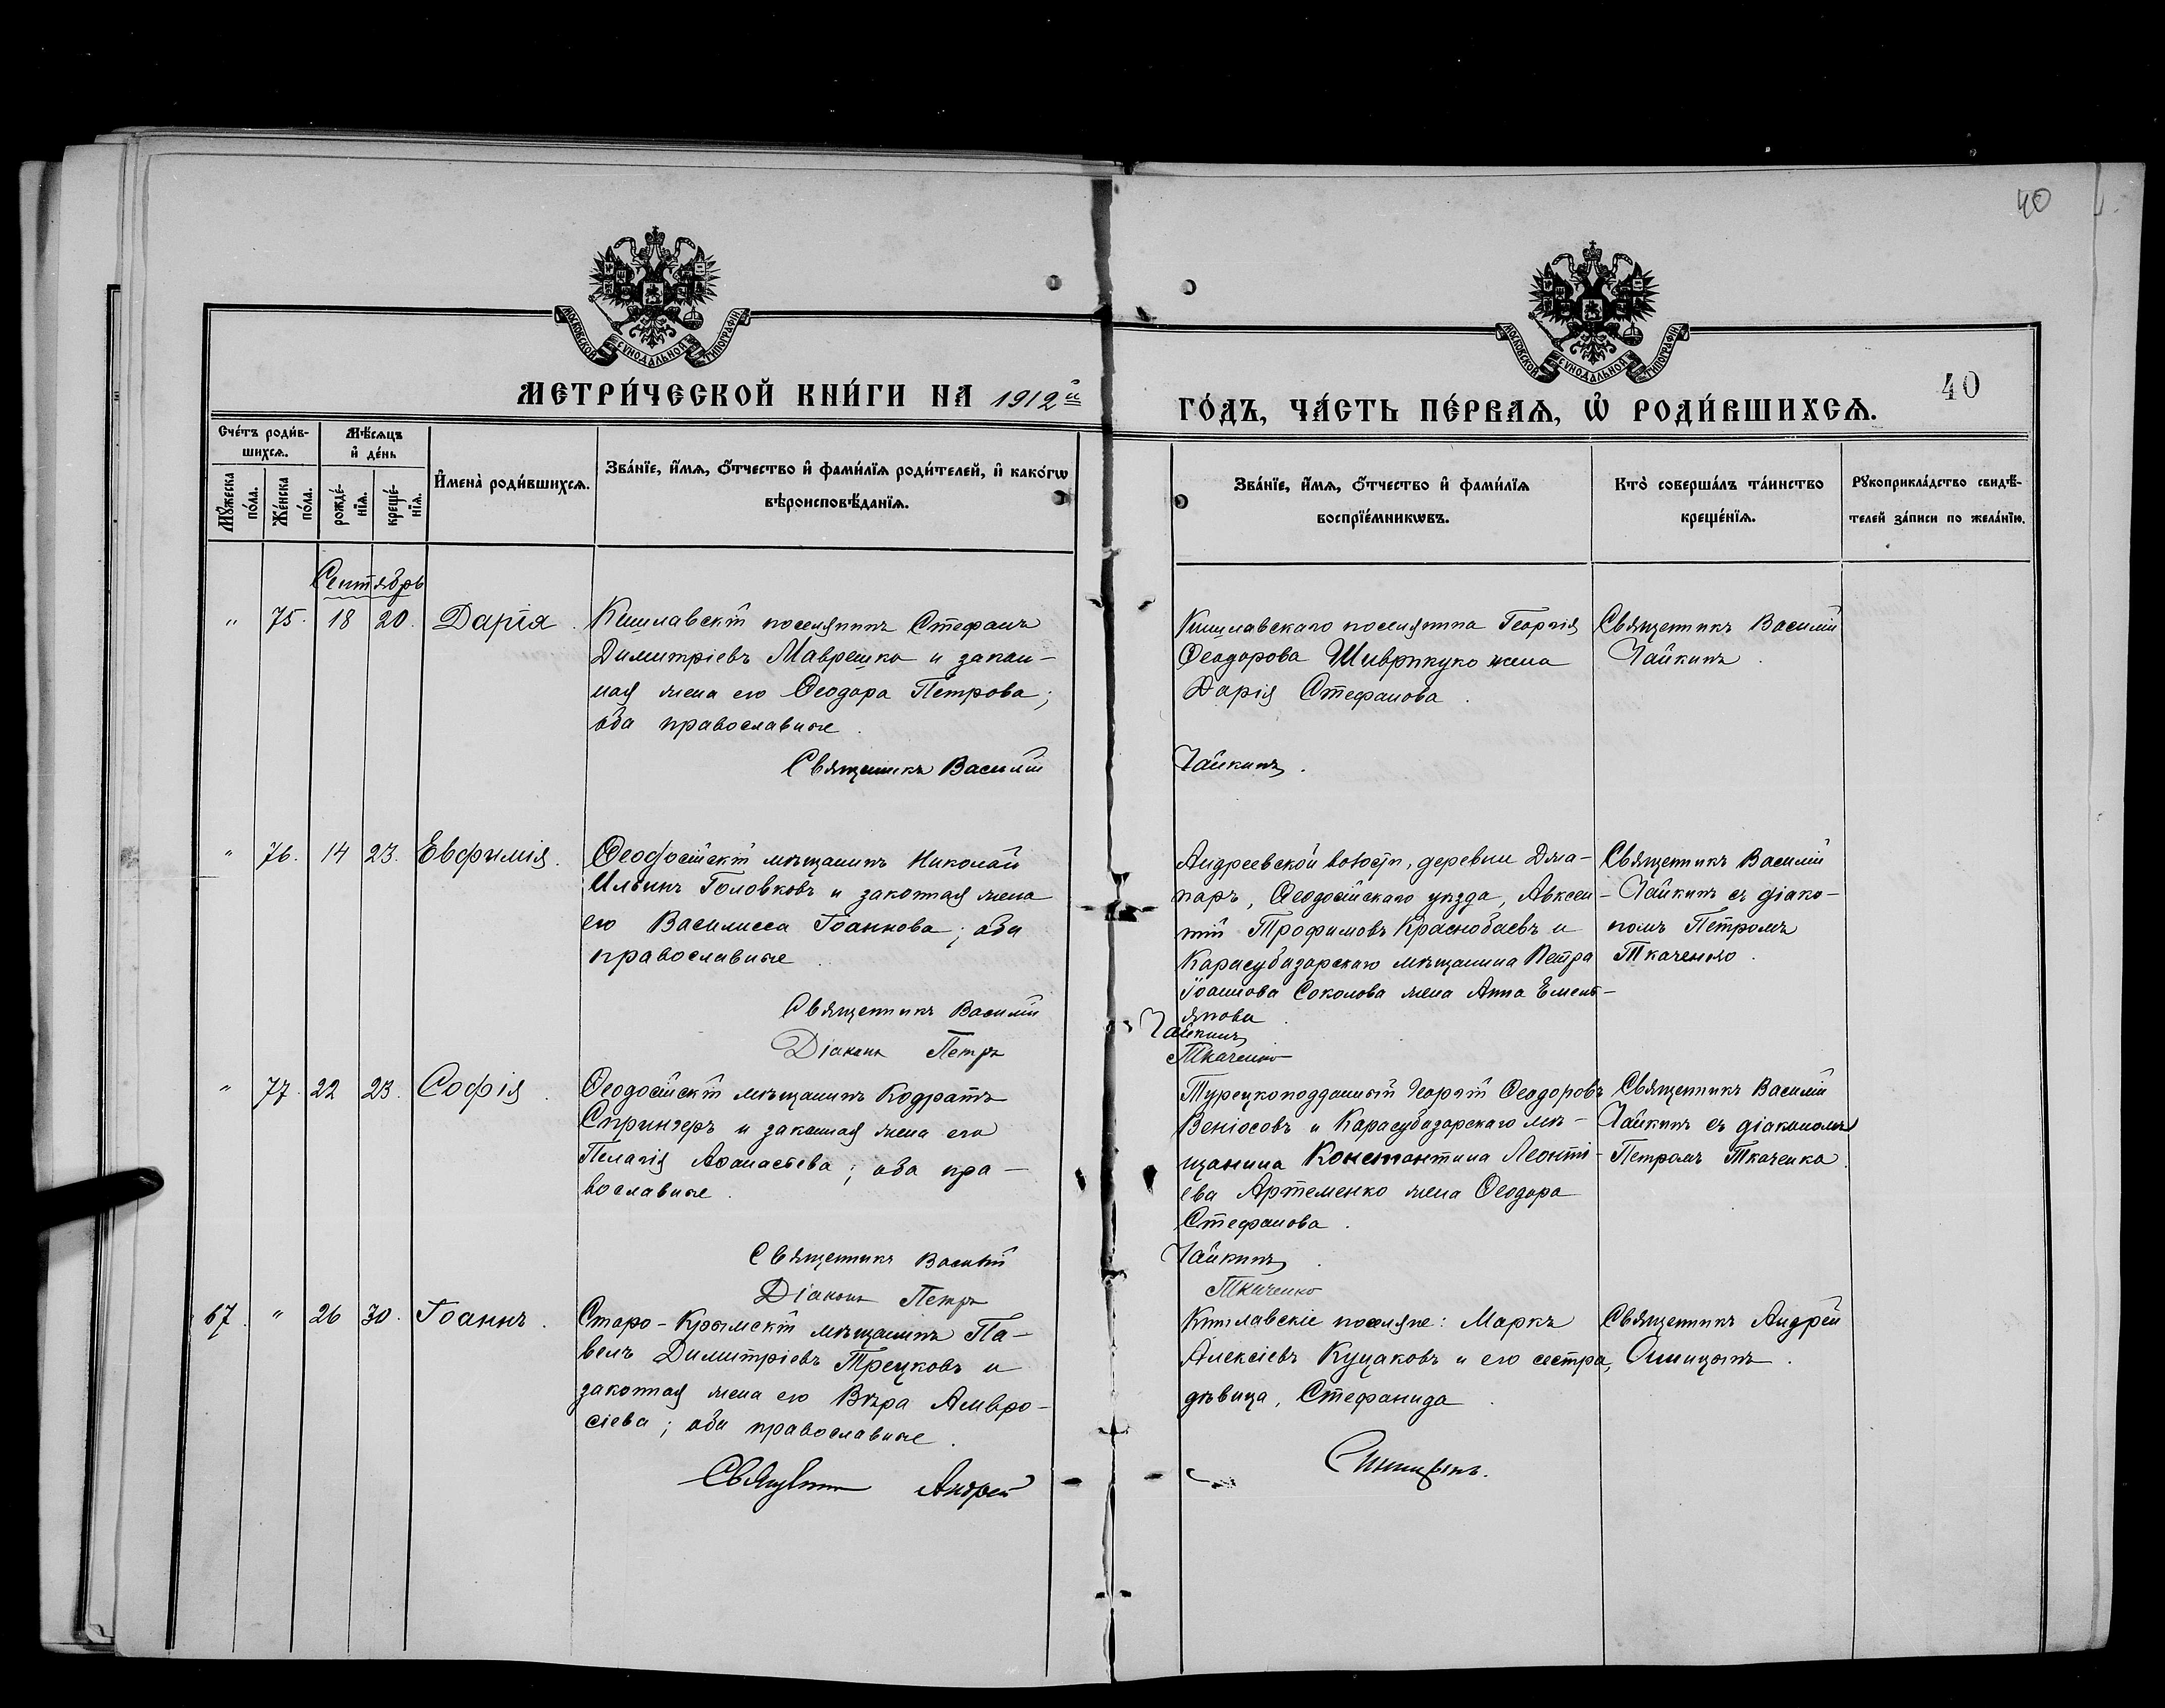 40
МОСКОВСКОЙ СУНОДАЛЬНОЙ ТИПОГРАФІИ
МОСКОВСКОЙ СУНОДАЛЬНОЙ ТИПОГРАФІИ
МЕТРИ́ЧЕСКОЙ КНИ́ГИ НА 1912й
ГО́ДЪ, ЧА́СТЬ ПЕ́РВАѦ, Ѡ҆ РОДИ́ВШИХСѦ.
40
Сче́тъ роди́в-
шихсѧ.
Мѣ́сѧцъ
и҆ де́нь
Мꙋ́жеска
по́ла.
Же́нска
по́ла.
рожде́-
нїѧ.
креще́-
нїѧ.
И҆мена̀ роди́вшихсѧ.
Зва́нїе, и҆́мѧ, ѻ҆́тчество и҆ фами́лїѧ роди́телей, и҆ како́гѡ
вѣроисповѣ́данїѧ.
Зва́нїе, и҆́мѧ, ѻ҆́тчество и҆ фами́лїѧ
воспрїе́мникѡвъ.
Кто̀ соверша́лъ та́инство
креще́нїѧ.
Рꙋкоприкла́дство свидѣ́-
телей за́писи по жела́нїю.
Сентябрь
" 75. 18 20. Дарія.
Кишлавскій поселянинъ Стефанъ
Димитріевъ Маврешко и закон-
ная жена его Ѳеодора Петрова;
оба православные.
Священникъ Василій
Кишлавскаго поселянина Георгія
Ѳеодорова Шиврикуко жена
Дарія Стефанова.
Чайкинъ.
Священникъ Василій
Чайкинъ.
" 76. 14 23. Евфимія.
Ѳеодосійскій мѣщанинъ Николай
Ильинъ Головковъ и законная жена
его Василисса Іоаннова; оба
православные.
Священникъ Василій
Діаконъ Петръ
Андреевской волости, деревни Джа-
паръ, Ѳеодосійскаго уѣзда, Авксен-
тій Трофимовъ Краснобаевъ и
Карасубазарскаго мѣщанина Петра
Іоаннова Соколова жена Анна Емель-
янова.
Чайкинъ
Ткаченко
Священникъ Василій
Чайкинъ съ діако-
номъ Петромъ
Ткаченко.
" 77. 22 23. Софія.
Ѳеодосійскій мѣщанинъ Кодратъ
Спрингеръ и законная жена его
Пелагія Аѳанасіева; оба пра-
вославные.
Священникъ Василій
Діаконъ Петръ
Турецкоподданный Георгій Ѳеодоровъ
Веніосовъ и Карасубазарскаго мѣ-
щанина Константина Леонті-
ева Артеменко жена Ѳеодора
Стефанова.
Чайкинъ.
Ткаченко
Священникъ Василій
Чайкинъ съ діакономъ
Петромъ Ткаченко.
67. " 26 30. Іоаннъ.
Старо-Крымскій мѣщанинъ Па-
велъ Димитріевъ Трецковъ и
законная жена его Вѣра Амвро-
сіева; оба православные.
Священникъ Андрей
Кишлавскіе поселяне: Маркъ
Алексіевъ Куцаковъ и его сестра,
дѣвица, Стефанида.
Синицынъ.
Священникъ Андрей
Синицынъ.